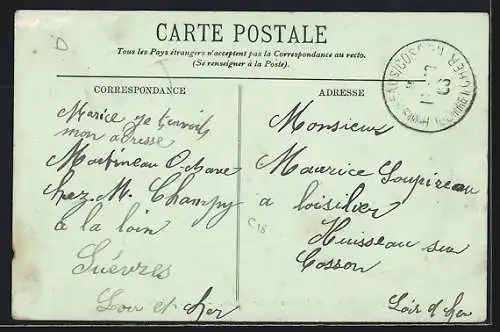 D
CARTE POSTALE
Tous les Pays étrangers n'acceptent pas la Correspondance au recto.
(Se renseigner à la Poste).
CORRESPONDANCE
Marice je t'envois
mon adresse
Martineau
chez M. Champy
à la loin
Suèvres
Loir et cher
ADRESSE
Monsieur
Maurice Loupineau
a loisilier
Huisseau sur
Cosson
Loir et cher
C18